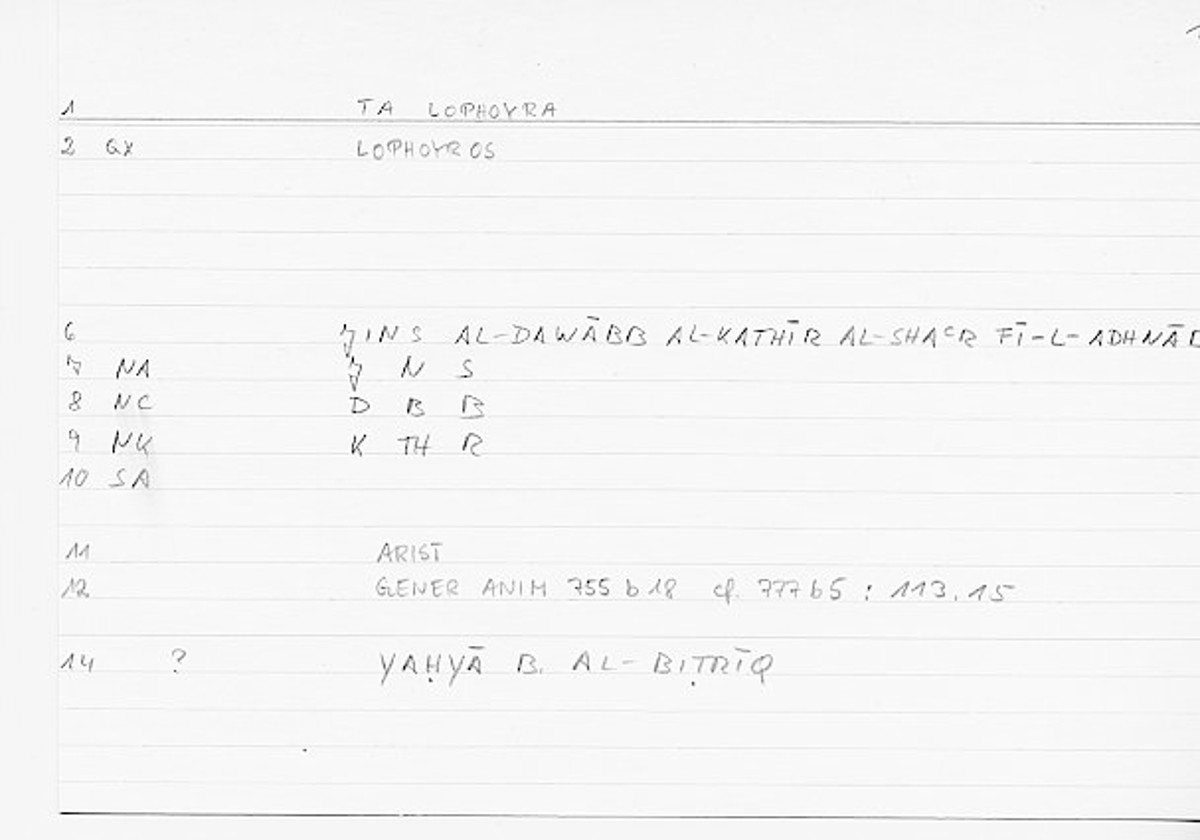 1 TA LOPHOYRA
2 GX LOPHOYROS
6 ǦINS AL-DAWĀBB AL-KATHĪR AL-SHAᶜR FĪ-L-ADHNĀB
7 NA Ǧ N S
8 NC D B B
9 NK K TH R
10 SA
11 ARIST
12 GENER ANIM 755 b 18 cf. 777 b5 : 113.15
14 ? YAḤYĀ B. AL-BIṬRĪQ